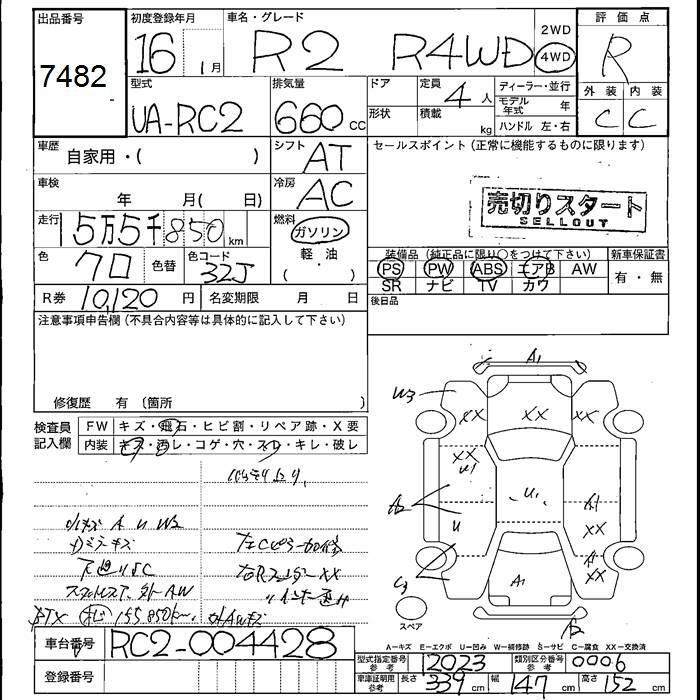 出品番号
7482
初度登録年月
16 1月
車名・グレード
R2 R4WD
2WD
4WD
評価点
R
外装 内装
C C
型式
UA-RC2
排気量
660 cc
ドア
形状
定員
4人
積載
kg
ディーラー・並行
モデル年式 年
ハンドル 左・右
車歴
自家用・( )
シフト
AT
セールスポイント(正常に機能するものに限ります)
車検
年 月( 日)
冷房
AC
売切りスタート
SELLOUT
走行
5万5千850km
燃料
ガソリン
軽・油
( )
色
クロ
色替
色コード
32J
装備品(純正品に限り○をつけて下さい)
PS PW ABS エアB AW
SR ナビ TV カワ
新車保証書
有・無
R券 10,120円
名変期限 月 日
後日品
注意事項申告欄(不具合内容等は具体的に記入して下さい)
修復歴 有 (箇所 )
検査員記入欄
FW キズ・飛石・ヒビ割・リペア跡・X要
内装 キズ・汚レ・コゲ・穴・スレ・キレ・破レ
A1
W3
XX XX XX
XX
U1
U1
A1
A2
U
XX
A1
スペア
A-キズ E-エクボ U-凹み W-補修跡 S-サビ C-腐食 XX-交換済
車台番号
RC2-004428
登録番号
型式指定番号参考 12023
類別区分番号参考 0006
車庫証明用参考
長さ 339cm 幅 147cm 高さ 152cm